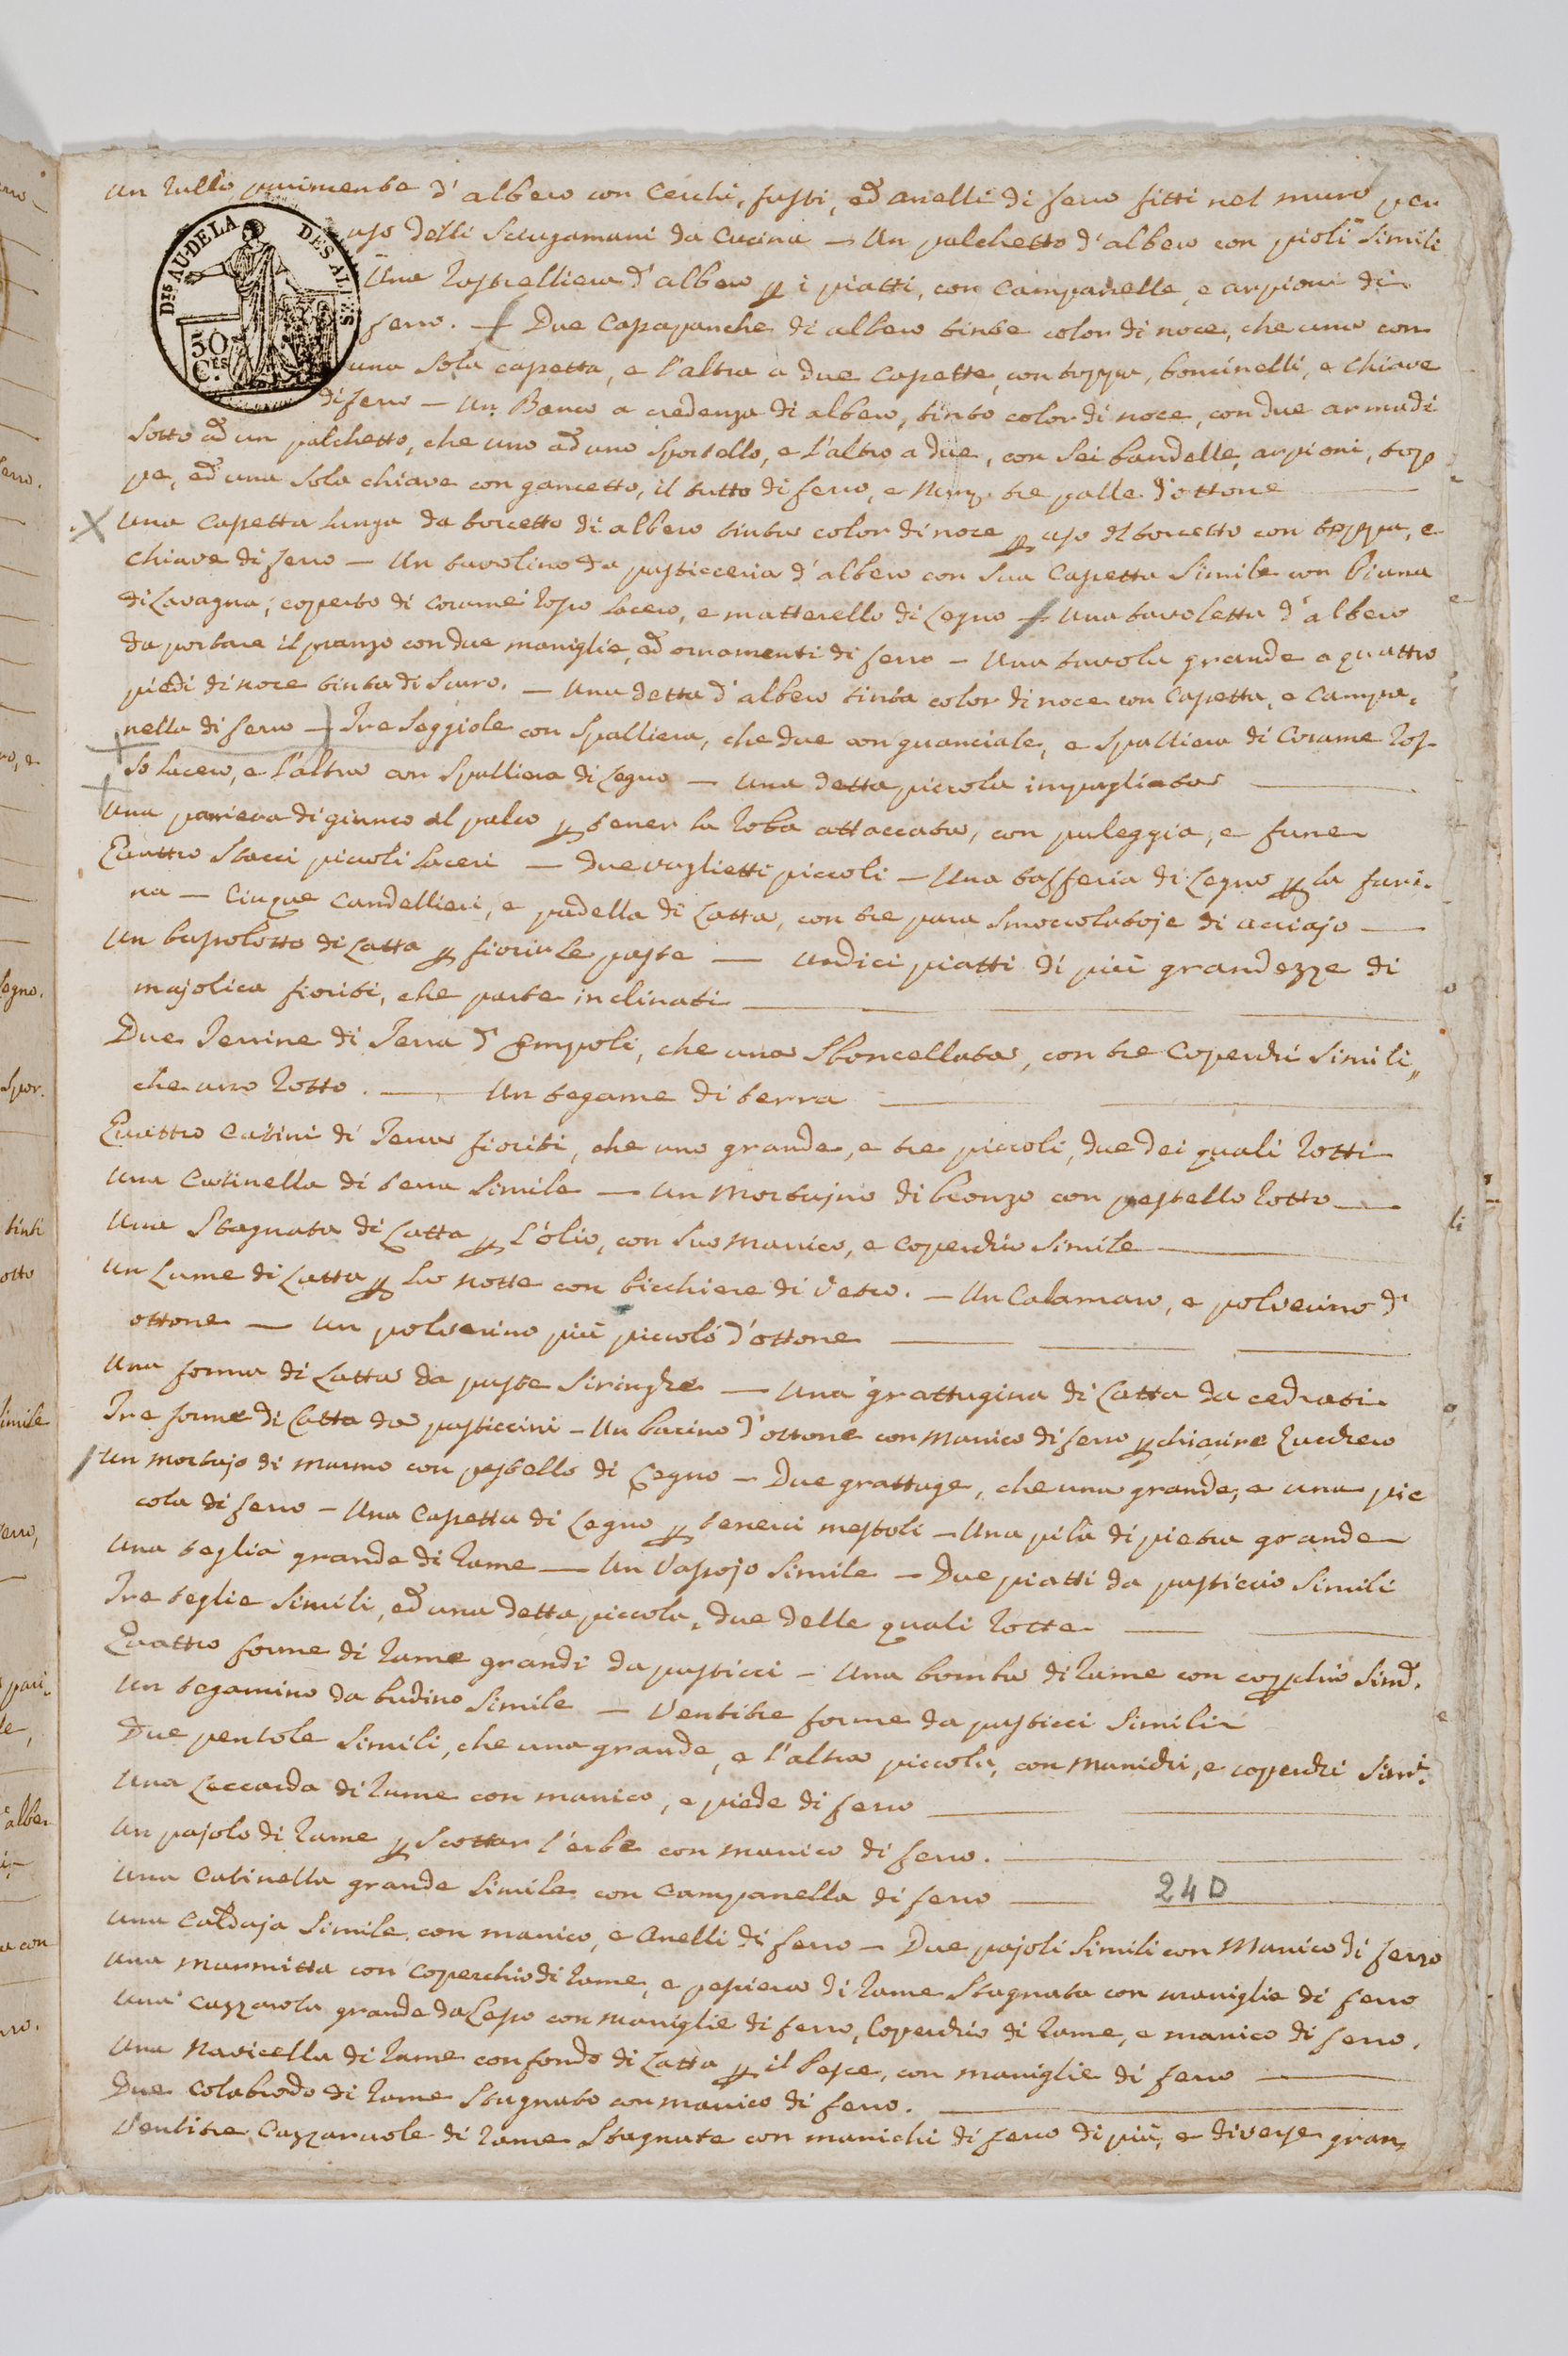 Un rullo parimente d'albero con cerchi, fusti, ed anelli di ferro fitti nel muro per
uso delli sciugamani da Cucina — Un palchetto d'albero con pioli simili
Una rastrelliera d'albero p i piatti, con campanelle, e arpioni di
ferro. — Due Cassapanche di albero tinte color di noce, che una con
una sola cassetta, e l'altra a due cassette, con toppa, boncinelli, e chiave
di ferro — Un Banco a credenza di albero, tinto color di noce, con due armadi
sotto ad un palchetto, che uno ad uno sportello, e l'altro a due, con sei bandelle, arpioni, top
pe, ed una sola chiave con gancetto, il tutto di ferro, e Num. tre palle d'ottone
Una Cassetta lunga da torcetto di albero tinta color di noce p uso del torcetto con toppa, e
chiave di ferro — Un tavolino da pasticceria d'albero con sua Cassetta simile con Piana
di Lavagna, coperto di corame rosso lacero, e matterello di legno — Una tavoletta d'albero
da portare il pranzo con due maniglie, ed ornamenti di ferro — Una tavola grande a quattro
piedi di noce tinta di scuro. — Una detta d'albero tinta color di noce con Cassetta, e Campa-
nella di ferro — Tre Seggiole con Spalliera, che due con guanciale, e Spalliera di Corame ros-
so lacero, e l'altra con Spalliera di legno — Una detta piccola impagliata
Una paniera di giunco al palco p tener la roba attaccata, con puleggia, e fune
Quattro Stacci piccoli laceri — due vaglietti piccoli — Una tafferia di legno p la fari-
na — Cinque Candellieri, e padella di Latta, con tre para smoccolatoje di acciajo
Un bussolotto di Latta p fiorir le paste — Undici piatti di più grandezze di
majolica fioriti, che parte inclinati
Due Terrine di Terra d'Empoli, che una sboncellata, con tre Coperchi simili,
che uno rotto. — Un tegame di terra
Quattro Catini di Terra fioriti, che uno grande, e tre piccoli, due dei quali rotti
Una Catinella di terra simile — Un Mortajno di bronzo con pestello rotto
Una Stagnata di Latta p l'olio, con suo manico, e coperchio simile
Un Lume di Latta p la notte con bicchiere di vetro. — Un Calamaro, e polverino d'
ottone — Un polverino più piccolo d'ottone
Una forma di Latta da paste siringhe — Una grattugina di Latta da cedrati
Tre forme di Latta da pasticcini — Un bacino d'ottone con manico di ferro p chiarire zucchero
Un mortajo di marmo con pestello di legno — Due grattuge, che una grande, e una pic
cola di ferro — Una Cassetta di legno p tenerci mestoli — Una pila di pietra grande
Una teglia grande di rame — Un Vassojo simile — Due piatti da pasticcio simili
Tre teglie simili, ed una detta piccola, due delle quali rotte
Quattro forme di rame grandi da pasticci — Una bomba di rame con coperchio simi.
Un tegamino da budino simile — Ventitre forme da pasticci simili
Due pentole simili, che una grande, e l'altra piccola, con manichi, e coperchi simi.
Una Leccarda di rame con manico, e piede di ferro
Un pajolo di rame p scottar l'erbe con manico di ferro.
Una Catinella grande simile con campanella di ferro 24D
Una Caldaja simile con manico, e anelli di ferro — Due pajoli simili con Manico di ferro
Una marmitta con Coperchio di rame, e pesciera di rame stagnata con maniglie di ferro
Una Cazzarola grande da lesso con maniglie di ferro, Coperchio di rame, e manico di ferro.
Una Navicella di rame con fondo di Latta p il Pesce, con maniglie di ferro
Due Colabrodo di rame stagnato con manico di ferro.
Ventitre Cazzaruole di rame stagnate con manichi di ferro di più, e diverse gran,
DIS AUDELA DES ALPES
50
CES